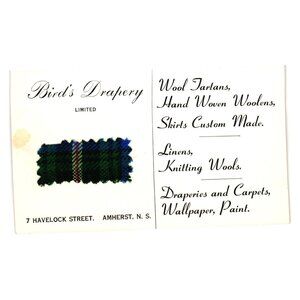 Bird's Drapery
LIMITED
7 HAVELOCK STREET. AMHERST, N. S.
Wool Tartans,
Hand Woven Woolens,
Skirts Custom Made.
Linens,
Knitting Wools.
Draperies and Carpets,
Wallpaper, Paint.